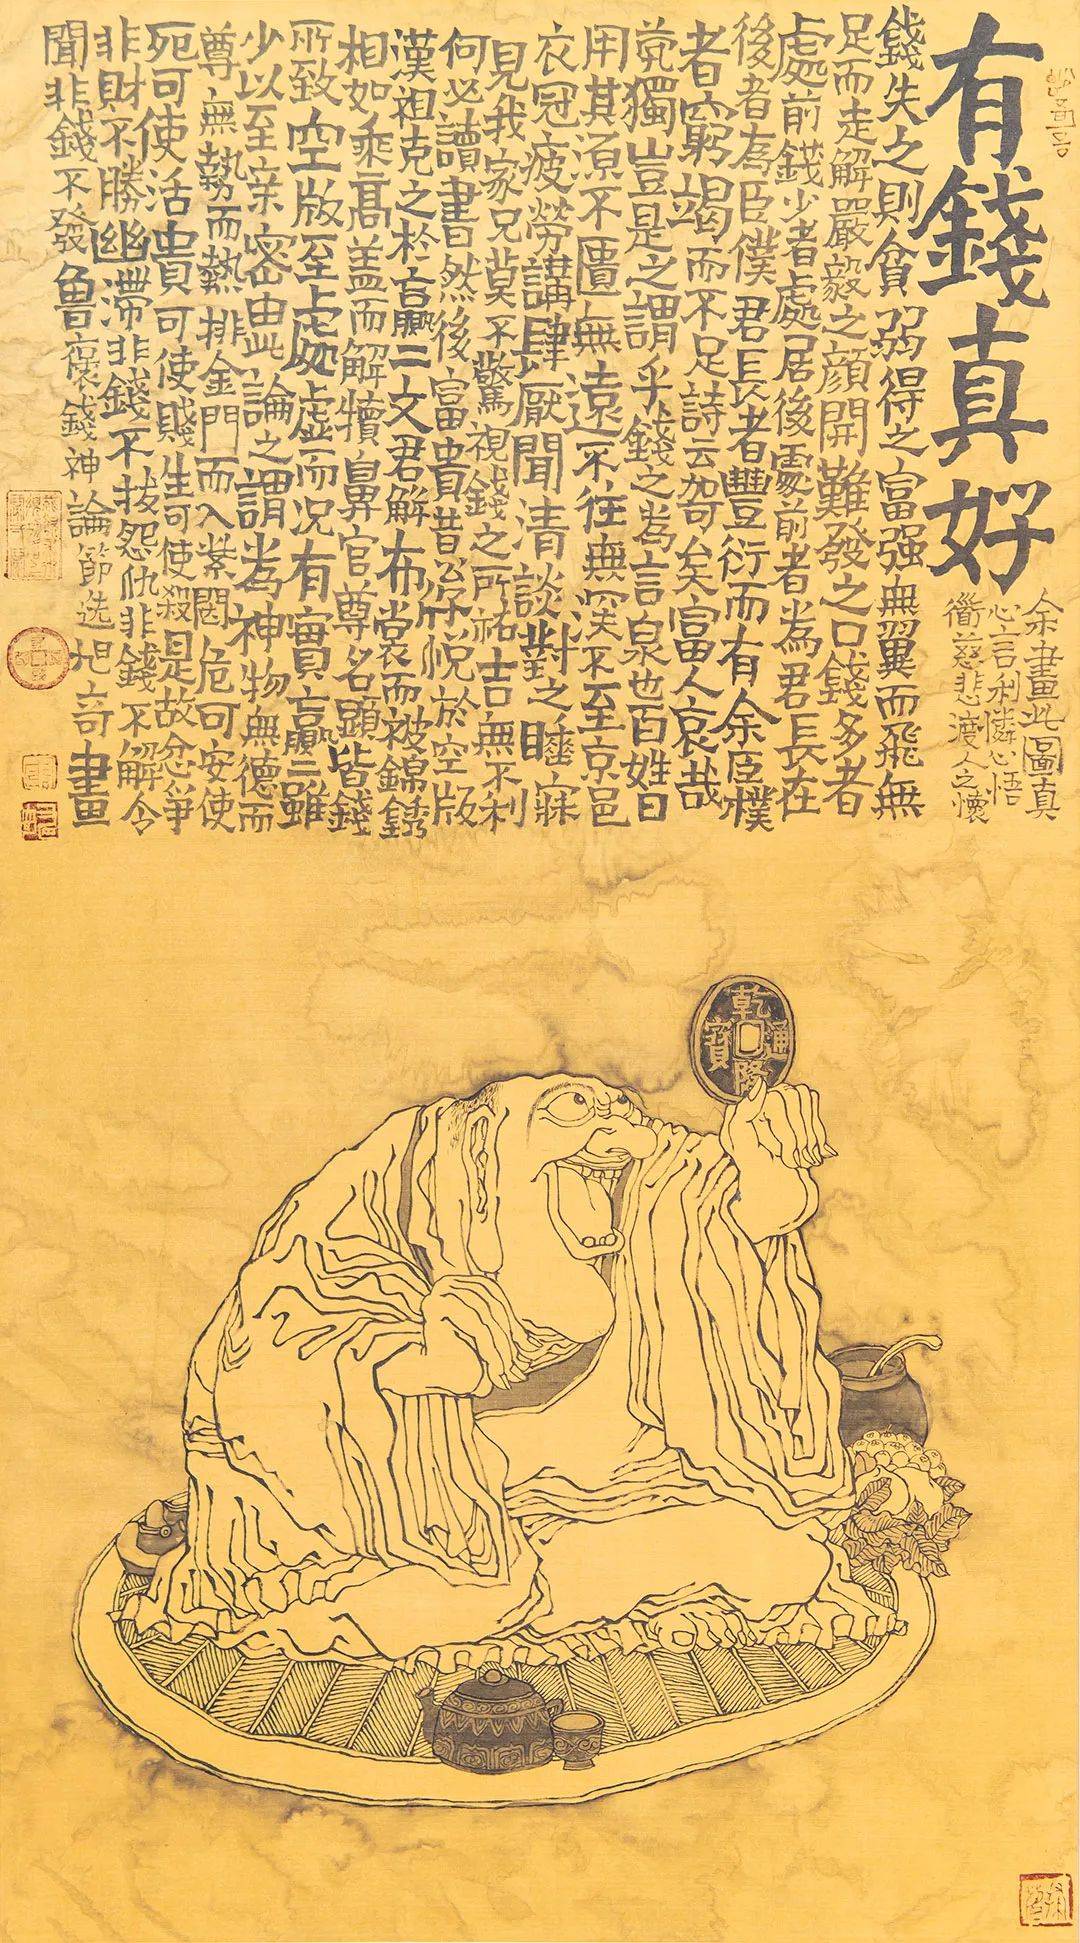 有錢真好
余畫此圖真
心言利憐心悟
慈悲渡人之懷
錢失之則貧弱得之富强無翼而飛無
足而走解嚴毅之顏開難發之口錢多者
處前錢少者處居後處前者為君長在
後者為臣僕君長者豐衍而有余臣樸
者窮竭而不足詩云哿矣富人哀哉
煢獨豈是之謂乎錢之為言泉也百姓日
用其源不匱無遠不往無深不至京邑
衣冠疲勞講肆厭聞清談對之睡寐
見我家兄莫不驚視錢之所祐吉無不利
何必讀書然後富貴昔公悅於空版
漢祖克之於贏二文君解布裳而被錦銹
相如乘高蓋而解犢鼻官尊名顯皆錢
所致空版至處虛而況有實贏二雖
少以至亲密由此論之謂為神物無德而
尊無勢而熱排金門而入紫闥危可安使
死可使活貴可使賤生可使殺是故忿爭
非財不勝幽滯非錢不拔怨仇非錢不解令
聞非錢不發魯褒錢神論節选旭奇畫
乾隆通寶